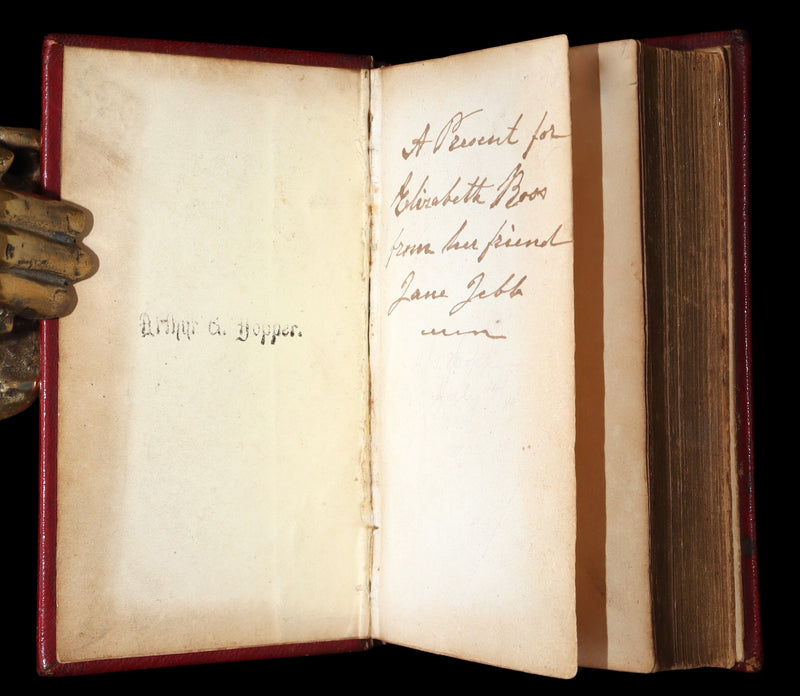 Arthur G. Popper.
A Present for
Elizabeth Ross
from her friend
Jane Jebb